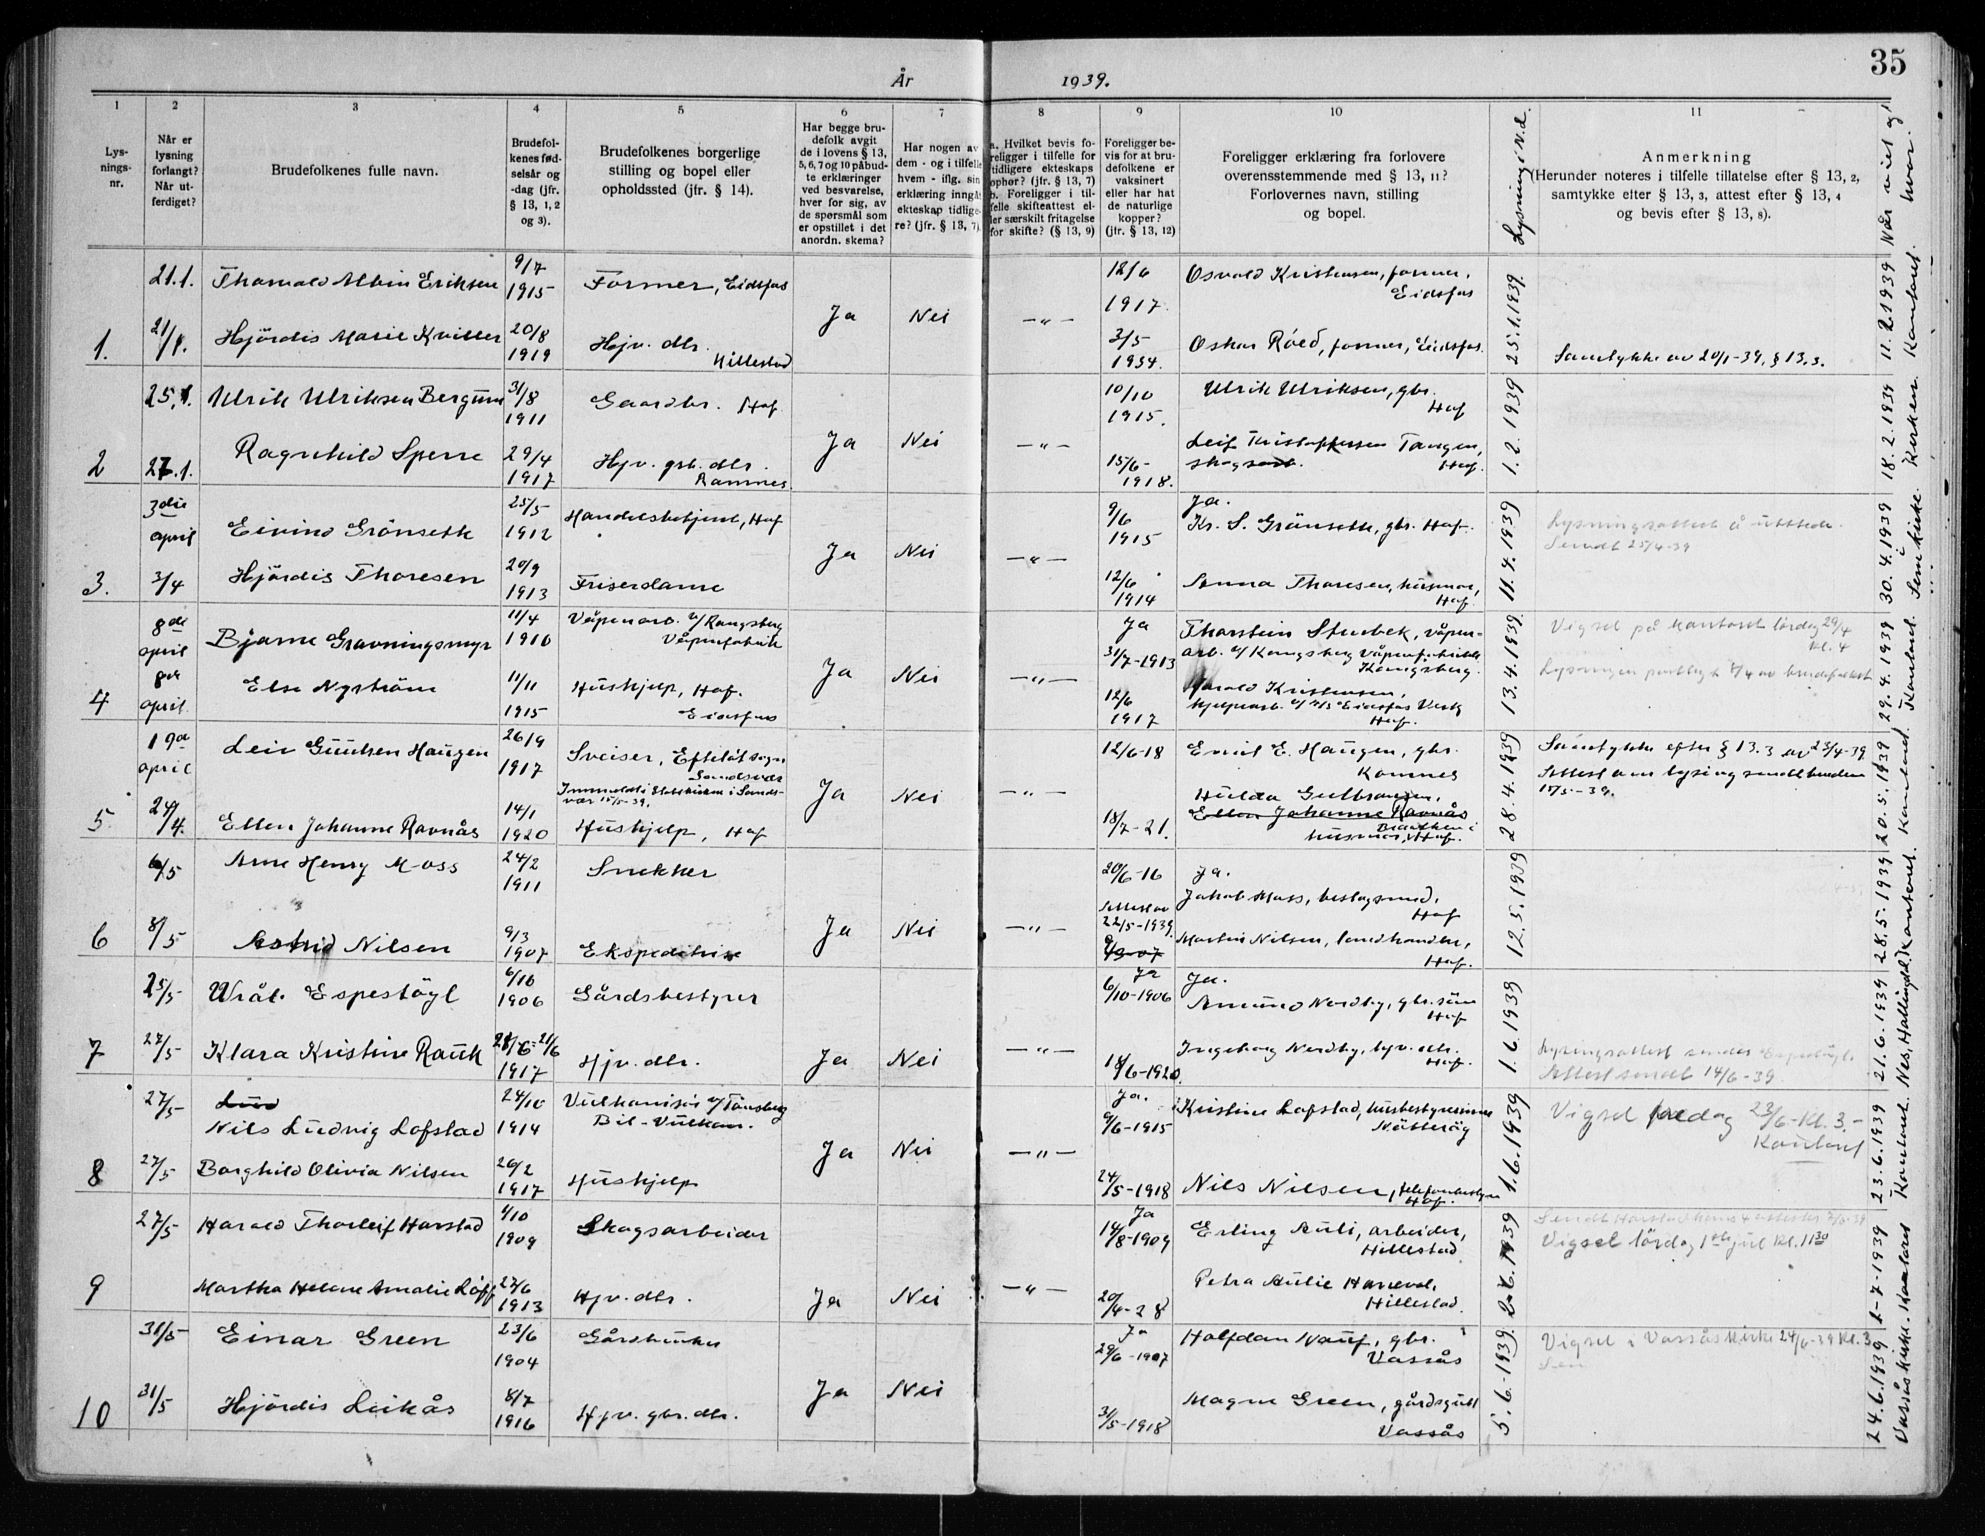 35
År 1939.
1 2 3 4 5 6 7 8 9 10 11
Lys-
nings-
nr.
Når er
lysning
forlangt?
Når ut-
ferdiget?
Brudefolkenes fulle navn.
Brudefol-
kenes fød-
selsår og
-dag (jfr.
§ 13, 1, 2
og 3).
Brudefolkenes borgerlige
stilling og bopel eller
opholdssted (jfr. § 14).
Har begge bru-
defolk avgit
de i lovens § 13,
5, 6, 7 og 10 påbud-
te erklæringer
ved besvarelse,
hver for sig, av
de spørsmål som
er opstillet i det
anordn. skema?
Har nogen av
dem - og i tilfelle
hvem - iflg. sin
erklæring inngåt
ekteskap tidlige-
re? (jfr. § 13, 7).
a. Hvilket bevis fo-
religger i tilfelle for
tidligere ekteskaps
ophør? (jfr. § 13, 7)
b. Foreligger i til-
felle skifteattest el-
ler særskilt fritagelse
for skifte? (§ 13, 9)
Foreligger be-
vis for at bru-
defolkene er
vaksinert
eller har hat
de naturlige
kopper?
(jfr. § 13, 12)
Foreligger erklæring fra forlovere
overensstemmende med § 13, 11?
Forlovernes navn, stilling
og bopel.
Lysning i N.d.
Anmerkning
(Herunder noteres i tilfelle tillatelse efter § 13, 2,
samtykke efter § 13, 3, attest efter § 13, 4
og bevis efter § 13, 8).
Når viet og
hvor.
1.
21.1. Thorvald Albin Eriksen 9/7 1915 Former, Eidsfos
12/6 1917 Osvald Kristensen, former,
Eidsfos
Ja Nei —"—
21/1. Hjördis Marie Kviller 20/8 1919 Hjv. dtr.
Hillestad
3/5 1934 Oskar Röed, former, Eidsfos.
25.1.1939.
Samtykke av 20/1-39, § 13.3.
11.2.1939 Kontoret.
2
25.1. Ulrik Ulriksen Bergum 31/8 1911 Gaardbr. Hof
10/10 1915. Ulrik Ulriksen, gbr.
Hof
Ja Nei —"—
27.1. Ragnhild Sperre 29/4 1917 Hjv. gsb. dtr.
Ramnes.
15/6- 1918. Leif Kristoffersen Tangen,
skogsarb. Hof.
1.2.1939
18.2.1939 Kirken.
3.
3die
april Eivind Grönseth 25/5 1912 Handelsbetjent, Hof
9/6 1915 Ja.
Kr. S. Grönseth, gbr. Hof.
Ja Nei —"—
3/4 Hjördis Thoresen 20/9 1913 Friserdame
12/6 1914 Anna Thoresen, husmor,
Hof.
11.4.1939
Lysningsattest å utstede.
Sendt 25/4-39
30.4.1939 i Sem kirke.
4
8de
april Bjarne Gravningsmyr 11/4 1910 Våpenarb. v/ Kongsberg
Våpenfabrikk
Ja
31/7-1913 Thorstein Stenbek, våpen-
arb. v/ Kongsberg Våpenfabrikk
Kongsberg.
Ja Nei —"—
8de
april. Else Nyström 11/11 1915 Hushjelp, Hof.
Eidsfos
12/6 1917 Harald Kristensen,
hjelpearb. v/ A/S Eidsfos Verk
Hof.
13.4.1939.
Vigsel på kontoret lördag 29/4
kl. 4
29.4.1939 Kontoret.
5.
19de
april Leiv Gundersen Haugen 26/9 1917 Sveiser, Efteløt sogn
Sandsvær
12/6-18 Emil E. Haugen, gbr.
Komnes
Innmeldt i Statskirken i Sands-
vær 15/5-39.
Ja Nei —"—
24/4. Ellen Johanne Ravnås 14/1 1920 Hushjelp, Hof
18/7-21. Hulda Gulbransen,
Ellen Johanne Ravnås
husmor, Hof.
28.4.1939
Samtykke efter § 13.3 av 23/4-39
Attest om lysing sendt bruden
17/5-39.
20.5.1939 Kontoret.
6
6/5 Arne Henry Moss 24/2 1911 Snekker
20/6-16 Ja.
Jakob Moss, bestagsmed,
Hof
Attest av
22/5-1939.
Ja Nei —"—
8/5 Astrid Nilsen 9/3 1907 Ekspeditrise
Martin Nilsen, landhandler,
Hof.
12.5.1939
28.5.1939 Kontoret.
7
25/5 Uråt. Espestögl 6/10 1906 Gårdsbestyrer
Ja
6/10-1906 Ja.
Amund Nordby, gbr. sön
Hof
27/5 Klara Kristine Rauk 21/6 1917 Hjv. dtr.
Ja Nei —"—
18/6-1920. Ingeborg Nordby, hjv. dtr.
Hof.
1.6.1939
Attest sendt 14/6-39.
21.6.1939 Nes, Hallingdal)
8
27/5 Lud
Nils Ludvig Lofstad 24/10 1914 Vulkanisör v/ Tönsberg
Bil-Vulkan.
Ja.
9/6-1915 Kristine Lofstad, husbestyrerinne
Nötteröy
Ja Nei —"—
27/5 Borghild Olivia Nilsen 26/2 1917 Hushjelp
24/5-1918 Nils Nilsen, telefonbestyrer
Hof.
1.6.1939
Vigsel fredag 23/6-Kl. 3.-
Kontoret
23.6.1939 Kontoret.
9
27/5 Harald Thorleif Harstad 4/10 1909 Skogsarbeider
Ja
14/8-1909 Erling Auli, arbeider,
Hillestad
Martha Helene Amalie Löff 27/6 1913 Hjv. dtr.
Ja Nei —"—
20/4-28 Petra Aulie Haneval,
Hillestad.
2.6.1939
Vigsel lördag 1ste juli kl. 11 30
1-7-1939 Kontoret
10
31/5 Einar Green 23/6 1904 Gårdbruker
Ja
29/6-1907 Halfdan Nauf, gbr.
Vassås
Ja Nei
31/5 Hjördis Leikås 8/7 1916 Hjv. gbr. dtr.
31/5-1918 Magne Green, gårdsgutt
Vassås
5.6.1939.
Vigsel i Vassås kirke 24/6-39 Kl. 3
24.6.1939 Vassås kirke.